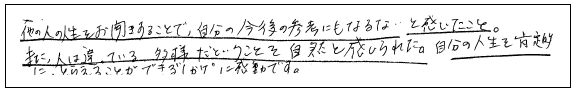 他の人の人生をお聞きすることで、自分の今後の参考にもなるな…と感じたこと。
また、人は違っている 多様だということを自然と感じられた。自分の人生を肯定的
に、とらえることができるしかけに感動です。